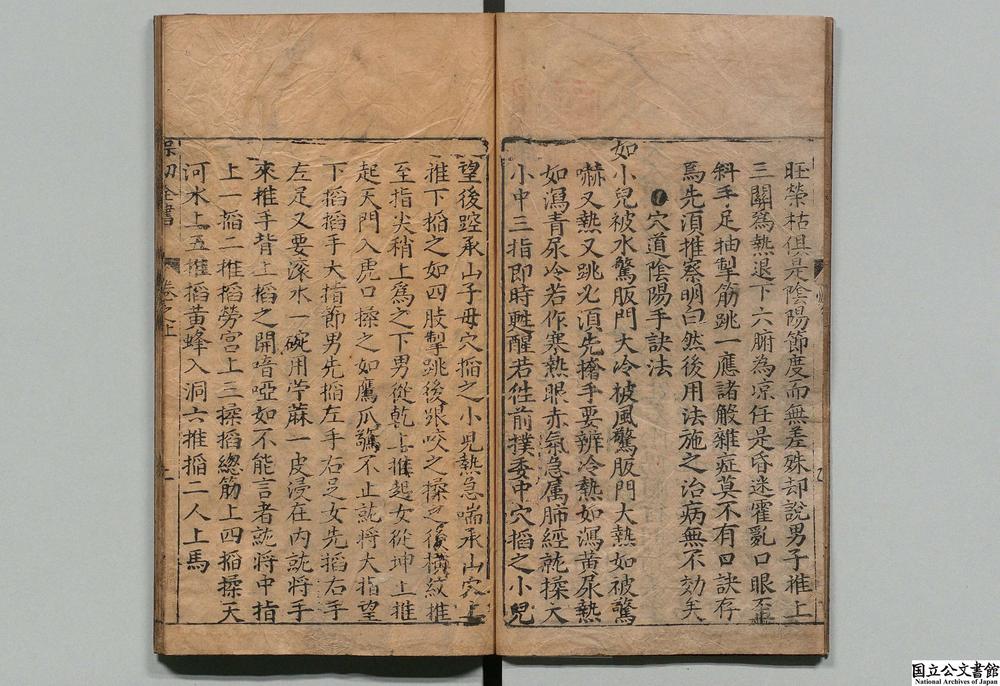 旺榮枯俱是陰陽節度而無差殊却說男子推上
三關為熱退下六腑為凉任是昏迷霍亂口眼歪
斜手足抽掣筋跳一應諸般雜症莫不有口訣存
焉先須推察明白然後用法施之治病無不効矣
穴道陰陽手訣法
如小兒被水驚版門大冷被風驚版門大熱如被驚
嚇又熱又跳必須先㩜手要辨冷熱如瀉黃尿熱
如瀉青尿冷若作寒熱眼赤氣急属肺經就揉大
小中三指即時甦醒若徃前撲委中穴搯之小兒
望後跌承山子母穴搯之小兒熱急喘承山穴上
推下搯之如四肢掣跳後跟咬之揉之後橫紋推
至指尖稍上為之下男從乾上推起女從坤上推
起天門入虎口揉之如鷹爪驚不止就將大指望
下搯搯手大指節男先搯左手右足女先搯右手
左足又要滚水一碗用苧蔴一皮浸在內就將手
來推手背上搯之開音啞如不能言者就將中指
上一搯二推搯勞宮上三揉搯總筋上四搯揉天
河水上五推搯黃蜂入洞六推搯二人上馬
保幼全書 卷之上
国立公文書館
National Archives of Japan